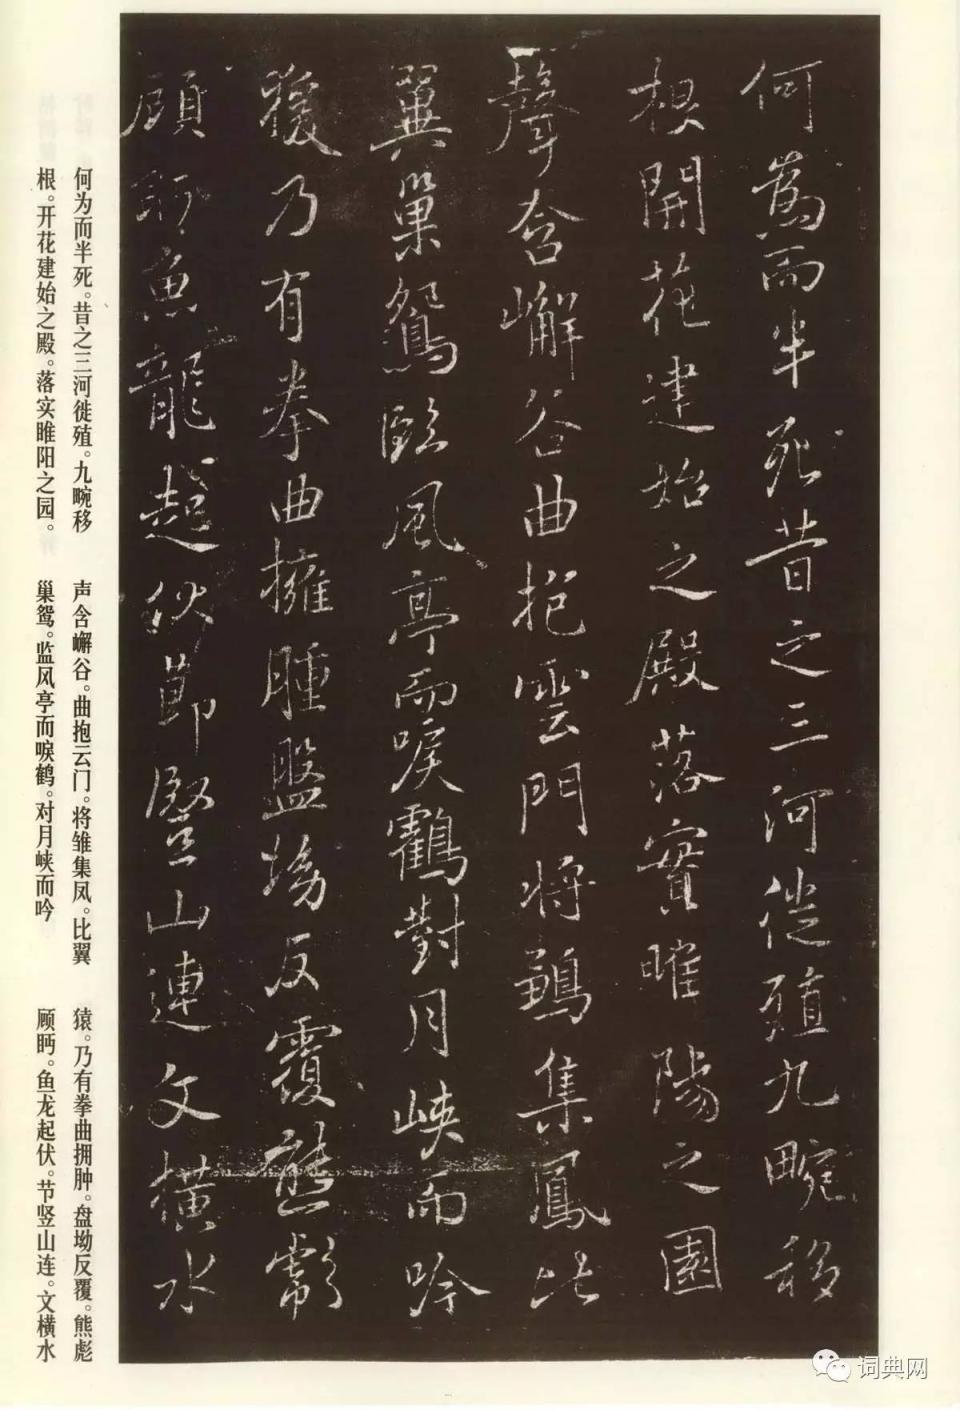 何為而半死昔之三河徙殖九畹移
根開花建始之殿落實睢陽之園
聲含嶰谷曲抱雲門將鶵集鳳比
翼巢鴛臨風亭而唳鶴對月峽而吟
猨乃有拳曲擁腫盤坳反覆熊彪
顧眄魚龍起伏節竪山連文橫水
何为而半死。昔之三河徙殖。九畹移
根。开花建始之殿。落实睢阳之园。
声含嶰谷。曲抱云门。将雏集凤。比翼
巢鸳。监风亭而唳鹤。对月峡而吟
猿。乃有拳曲拥肿。盘坳反覆。熊彪
顾眄。鱼龙起伏。节竖山连。文横水
词典网